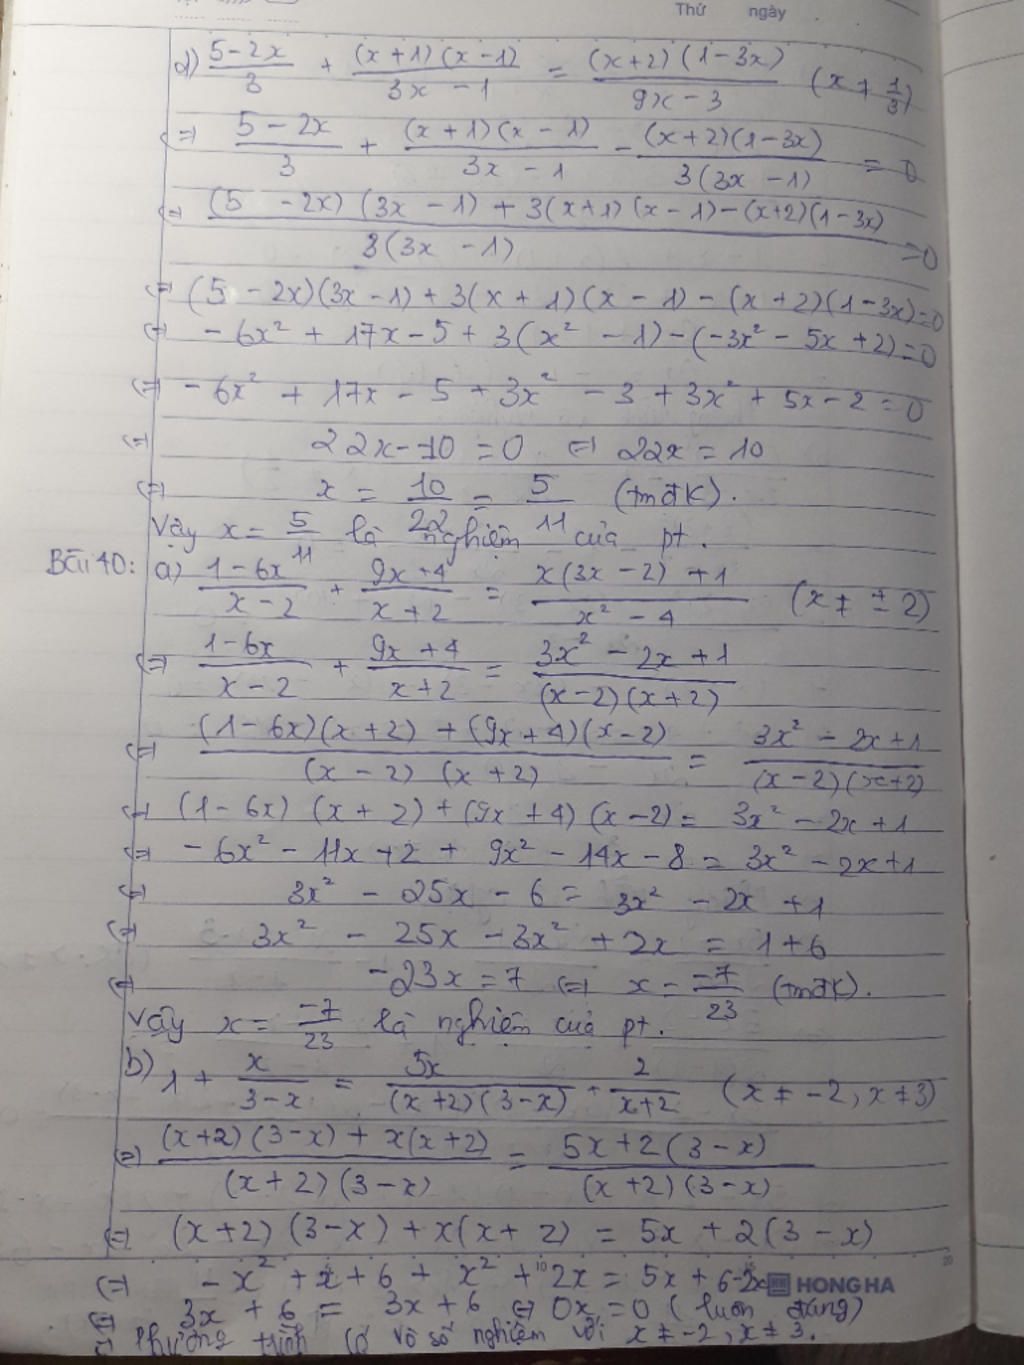 Thứ ngày
d) (5-2x)/3 + (x+1)(x-1)/(3x-1) = (x+2)(1-3x)/(9x-3) (x ≠ 1/3)
⇔ (5-2x)/3 + (x+1)(x-1)/(3x-1) - (x+2)(1-3x)/(3(3x-1)) = 0
⇔ ((5-2x)(3x-1) + 3(x+1)(x-1) - (x+2)(1-3x))/(3(3x-1)) = 0
⇔ (5-2x)(3x-1) + 3(x+1)(x-1) - (x+2)(1-3x) = 0
⇔ -6x² + 17x - 5 + 3(x² - 1) - (-3x² - 5x + 2) = 0
⇔ -6x² + 17x - 5 + 3x² - 3 + 3x² + 5x - 2 = 0
⇔ 22x - 10 = 0 ⇔ 22x = 10
⇔ x = 10/22 = 5/11 (tmđk).
Vậy x = 5/11 là nghiệm của pt.
Bài 40: a) (1-6x)/(x-2) + (9x+4)/(x+2) = (x(3x-2)+1)/(x²-4) (x ≠ ±2)
⇔ (1-6x)/(x-2) + (9x+4)/(x+2) = (3x²-2x+1)/((x-2)(x+2))
⇔ ((1-6x)(x+2) + (9x+4)(x-2))/((x-2)(x+2)) = (3x²-2x+1)/((x-2)(x+2))
⇔ (1-6x)(x+2) + (9x+4)(x-2) = 3x² - 2x + 1
⇔ -6x² - 11x + 2 + 9x² - 14x - 8 = 3x² - 2x + 1
⇔ 3x² - 25x - 6 = 3x² - 2x + 1
⇔ 3x² - 25x - 3x² + 2x = 1 + 6
⇔ -23x = 7 ⇔ x = -7/23 (tmđk).
Vậy x = -7/23 là nghiệm của pt.
b) 1 + x/(3-x) = 5x/((x+2)(3-x)) + 2/(x+2) (x ≠ -2, x ≠ 3)
⇔ ((x+2)(3-x) + x(x+2))/((x+2)(3-x)) = (5x+2(3-x))/((x+2)(3-x))
⇔ (x+2)(3-x) + x(x+2) = 5x + 2(3-x)
⇔ -x² + x + 6 + x² + 2x = 5x + 6 - 2x
HONG HA
⇔ 3x + 6 = 3x + 6 ⇔ 0x = 0 (luôn đúng)
⇒ Phương trình có vô số nghiệm với x ≠ -2, x ≠ 3.